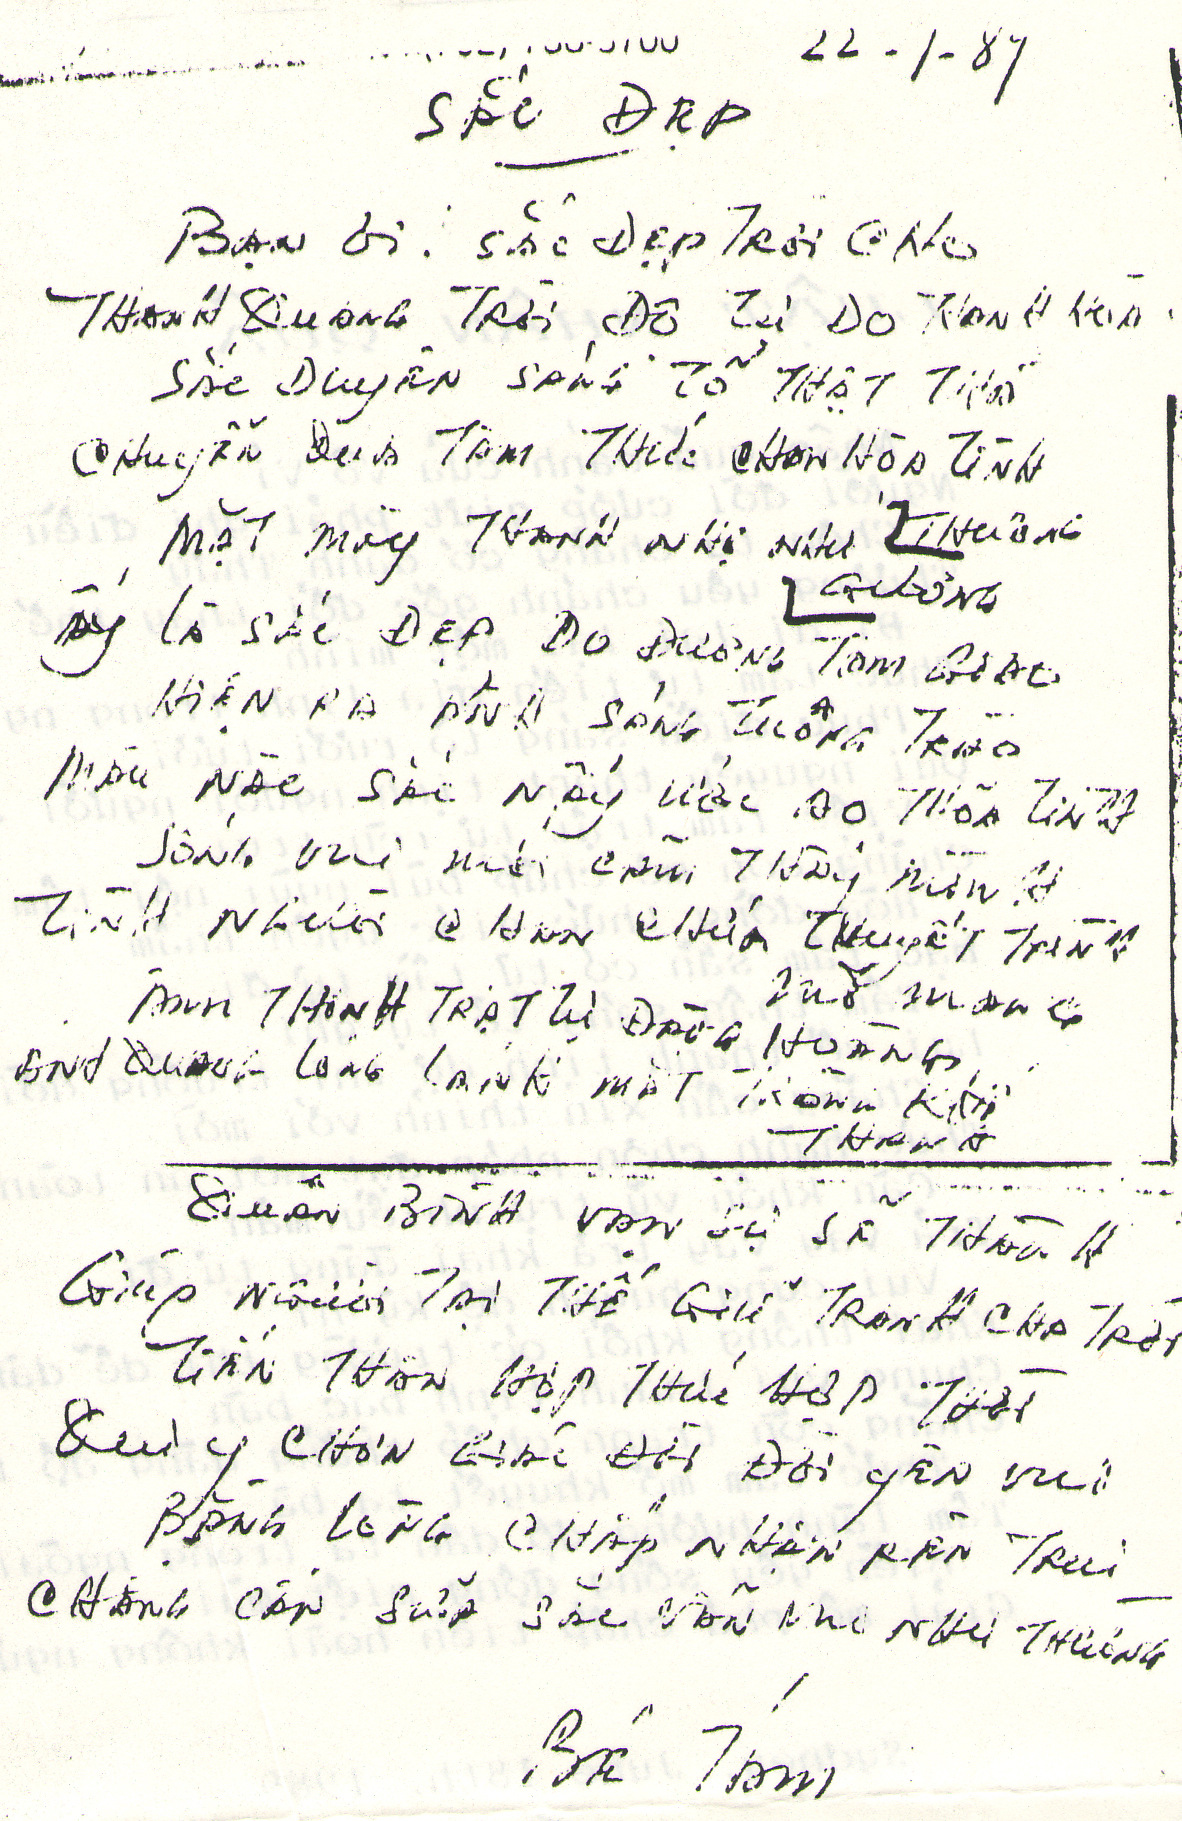 22-1-87
SẮC ĐẸP
BẠN ƠI! SẮC ĐẸP TRỜI CHO
THANH QUANG TRỜI ĐỘ TỰ DO THANH HÒA
SẮC DUYÊN SÁNG TỎ THẬT THÀ
CHUYỂN QUA TÂM THỨC CHƠN HÒA TÌNH
MẶT MÀY THANH NHẸ NHƯ THƯỜNG
GƯƠNG
ẤY LÀ SẮC ĐẸP DO ĐƯỜNG TÂM GIAO
HIỆN RA ÁNH SÁNG TUÔNG TRÀO
MÀU NÀO SẮC NẤY ƯỚC AO THỎA TÌNH
SỐNG VUI MỚI CẢM THẤY MÌNH
TÌNH NGƯỜI CHAN CHỨA THUYẾT TRÌNH
MỞ MANG
ÂM THINH TRẬT TỰ ĐÀNG HOÀNG
ÁNH QUANG LÓNG LÁNH MẶT TRÒNG KHÔI
THANH
QUÂN BÌNH VẠN SỰ SẼ THÀNH
GIÚP NGƯỜI TẠI THẾ GIỮ TRANH CHA TRỜI
TIẾN THÂN HỢP THỨC HỢP THỜI
QUI Y CHƠN GIÁC ĐỜI ĐỜI YÊN VUI
BẰNG LÒNG CHẤP NHẬN RÈN TRUI
CHẲNG CẦN SỬA SẮC VẪN VUI NHƯ THƯỜNG
BÉ TÁM